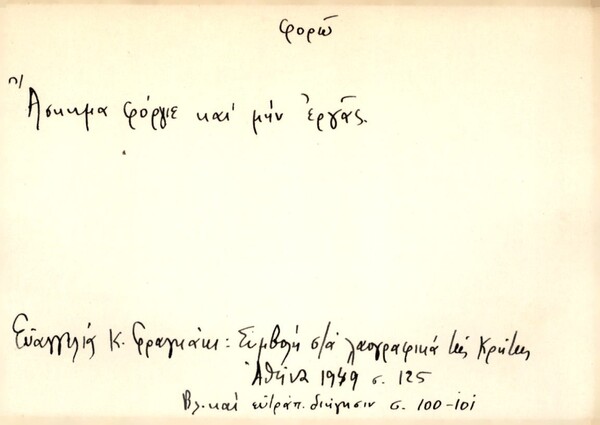 φορῶ
Ἄσκημα φόργιε καί μήν ἐργᾶς.
Εὐαγγελία Κ. Φραγκάκι: Συμβολή στά λαογραφικά τῆς Κρήτης
Ἀθήνα 1949 σ. 125
Βλ. καί εὐτράπ. διήγησιν σ. 100-101